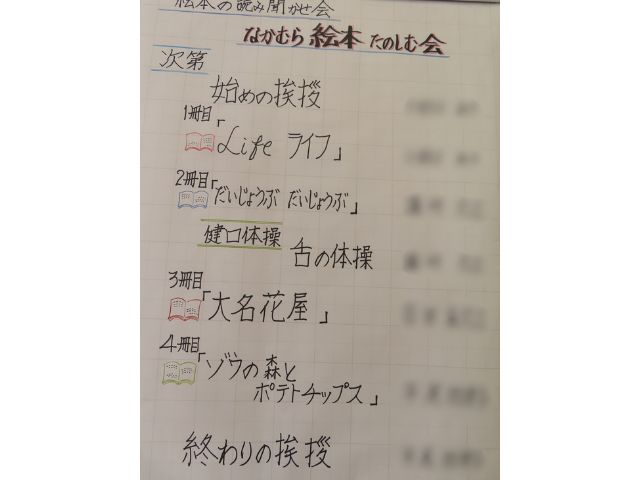 絵本の読み聞かせ会
なかむら 絵本 たのしむ会
次第
始めの挨拶
1冊目
「Life ライフ」
2冊目
「だいじょうぶ だいじょうぶ」
健口体操
舌の体操
3冊目
「大名花屋」
4冊目
「ゾウの森と
ポテトチップス」
終わりの挨拶